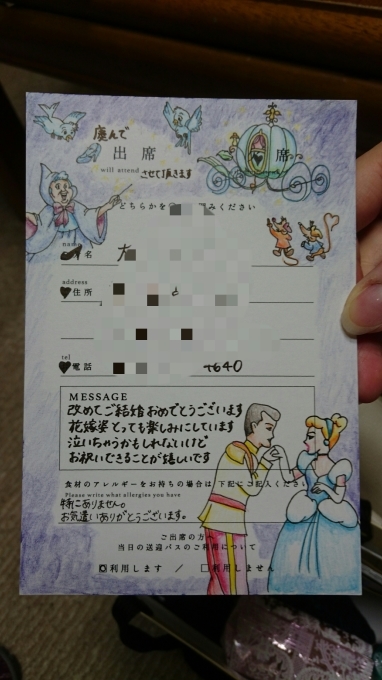 慶んで
出席
席
will attend
させて頂きます
どちらかを
みください
name
名
address
住所
tel
電話
4640
MESSAGE
改めてご結婚おめでとうございます
花嫁姿とっても楽しみにしています
泣いちゃうかもしれないけど
お祝いできることが嬉しいです
食材のアレルギーをお持ちの場合は下記にご記入ください
Please write what allergies you have
特にありません。
お気遣いありがとうございます。
ご出席の方へ
当日の送迎バスのご利用について
利用します / □利用しません